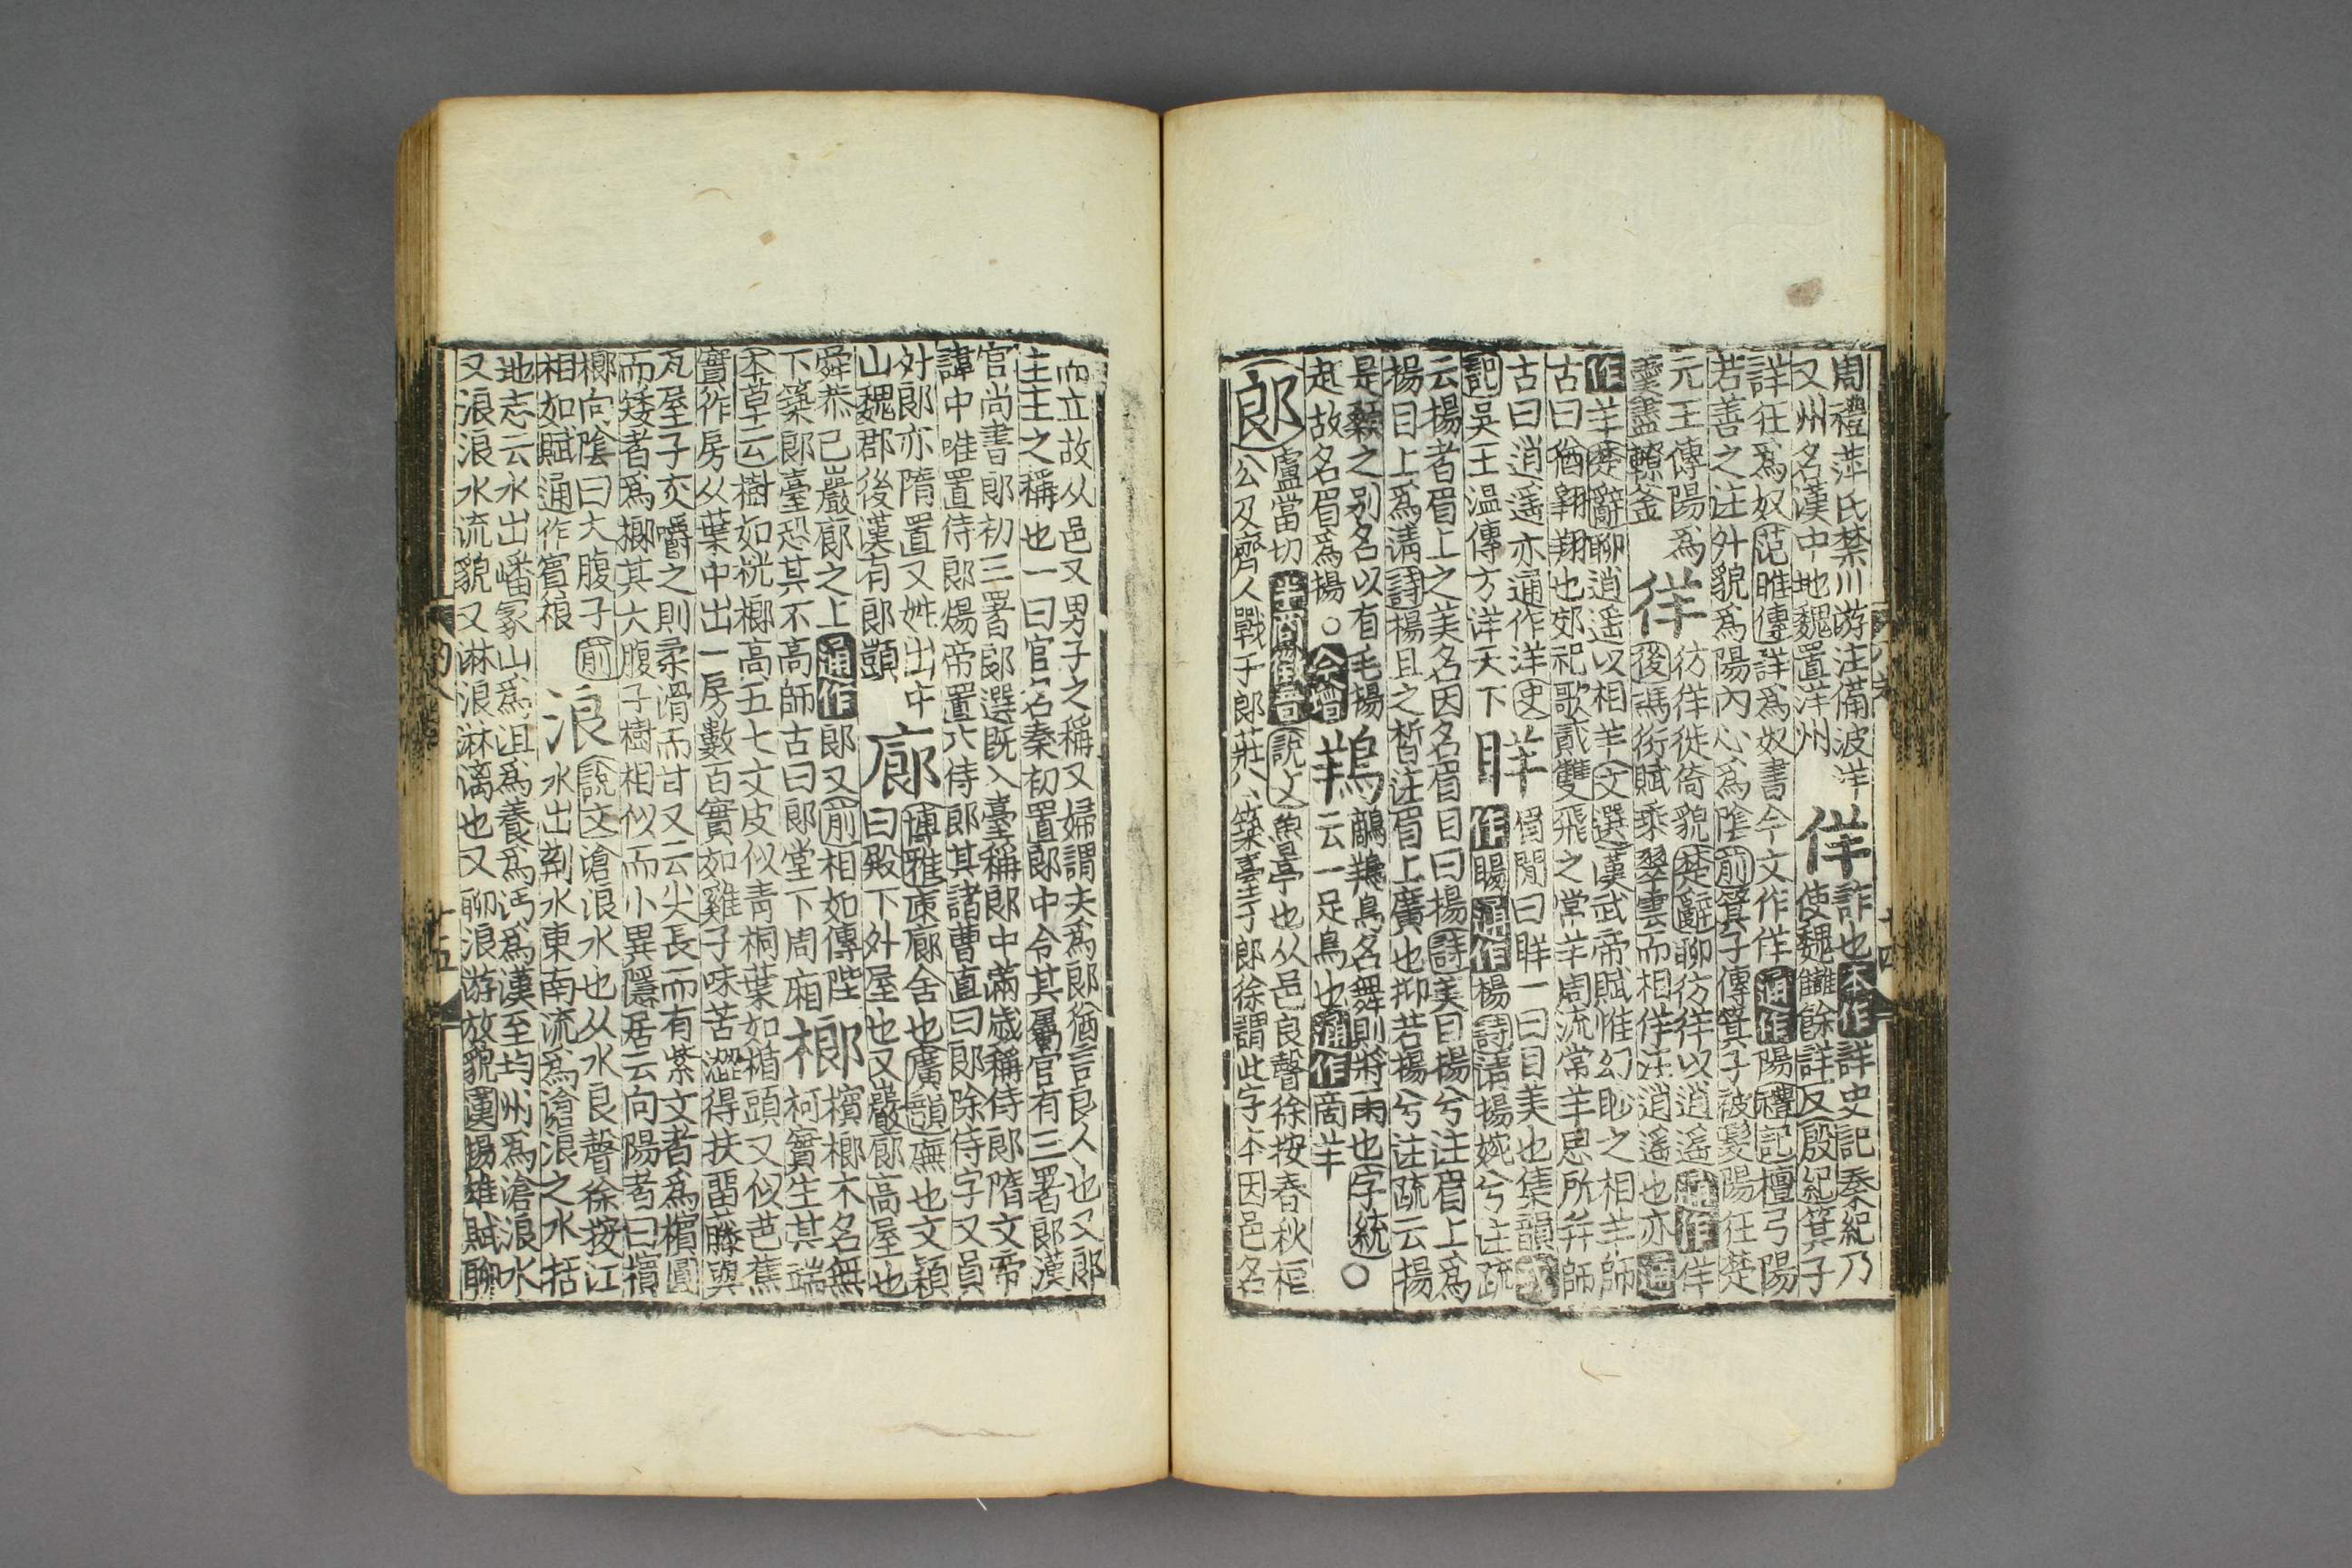 周禮萍氏禁川游注備波洋
又州名漢中地魏置洋州
佯
詐也本作詳史記秦紀乃
使魏讎餘詳反殷紀箕子
詳狂爲奴范睢傳詳爲奴書今文作佯通作陽禮記檀弓陽
若善之注外貌爲陽內心爲陰前箕子傳箕子被髮陽狂楚
元王傳陽爲
羹盡轑釜
徉
彷徉徙倚貌楚辭聊彷徉以逍遥通作佯
後馮衍賦乘翠雲而相佯注逍遥也亦通
作羊楚辭聊逍遥以相羊文選漢武帝賦惟幻眇之相羊師
古曰猶翱翔也郊祀歌貳雙飛之常羊周流常羊思所幷師
古曰逍遥亦通作洋史
記吳王温傳方洋天下
眻
眉間曰眻一曰目美也集韻或
作暘通作楊詩清揚婉兮注疏
云揚者眉上之美名因名眉目曰揚詩美目揚兮注眉上爲
揚目上爲清詩楊且之晳注眉上廣也抑若揚兮注疏云揚
是顙之别名以有毛揚
起故名眉爲揚○今增
鴹
鸍鴹鳥名舞則將雨也字統○
云一足鳥也通作商羊
郎
盧當切半商徵音說文魯亭也从邑良聲徐按春秋桓
公及齊人戰于郎莊八築臺于郎徐謂此字本因邑名
而立故从邑又男子之稱又婦謂夫爲郎猶言良人也又郎
主主之稱也一曰官名秦初置郎中令其屬官有三署郎漢
官尚書郎初三署郎選旣入臺稱郎中滿歲稱侍郎隋文帝
諱中唯置侍郎煬帝置六侍郎其諸曹直曰郎除侍字又員
外郎亦隋置又姓出中
山魏郡後漢有郎顗
廊
博雅束廊舍也廣韻廡也文穎
曰殿下外屋也又巖廊高屋也
舜恭己巖廊之上通作郎又前相如傳陛
下築郎臺恐其不高師古曰郎堂下周廂
榔
檳榔木名無
柯實生其端
本草云樹如桄榔高五七丈皮似青桐葉如楯頭又似芭蕉
實作房从葉中出一房數百實如雞子味苦澀得扶留藤與
瓦屋子灰嚼之則柔滑而甘又云尖長而有紫文者爲檳圓
而矮者爲榔其大腹子樹相似而小異隱居云向陽者曰檳
榔向陰曰大腹子前
相如賦通作賓桹
浪
說文滄浪水也从水良聲徐按江
水出荆水東南流爲滄浪之水括
地志云水出嶓冢山爲沮爲養爲沔爲漢至均州爲滄浪水
又浪浪水流貌又淋浪淋漓也又聊浪游放貌漢陽雄賦聊